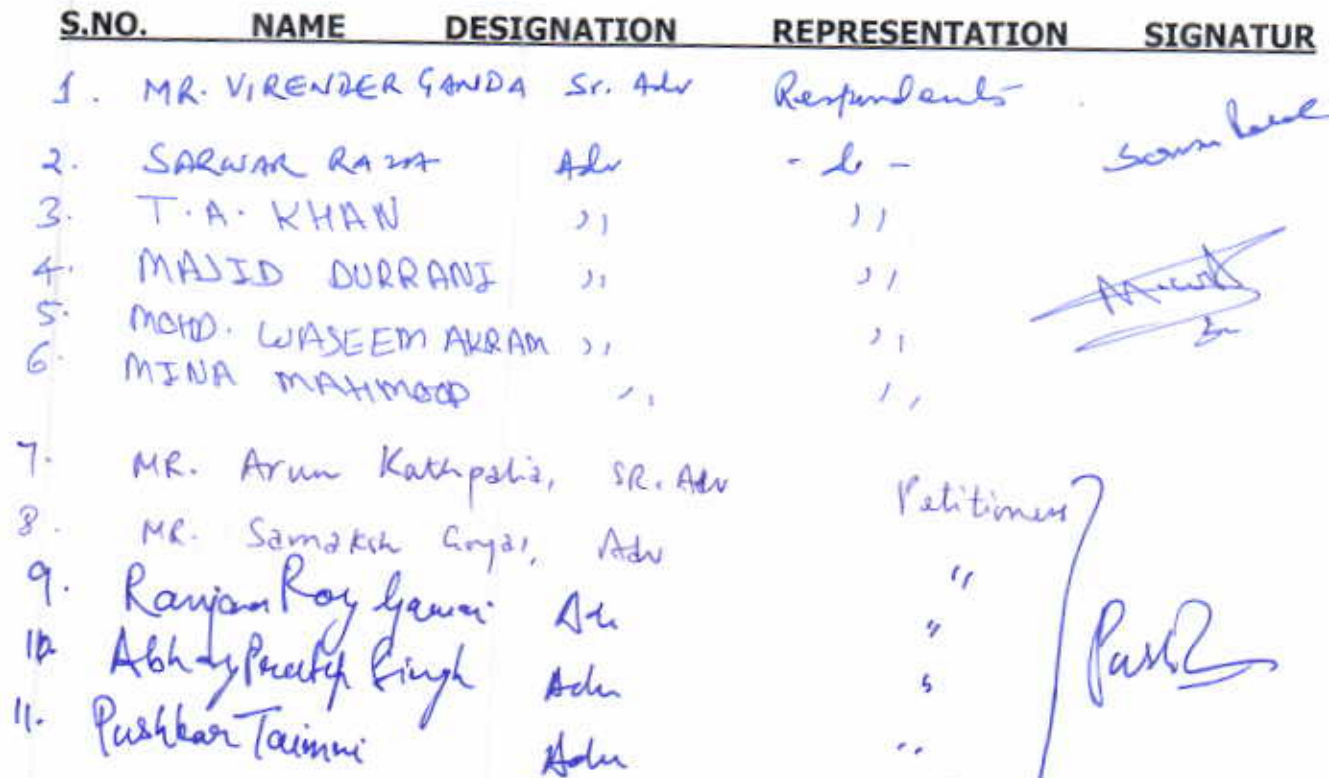 S.NO. NAME DESIGNATION REPRESENTATION SIGNATUR
1. MR. VIRENDER GANDA Sr. Adv Respondents
2. SARWAR RAZA Adv - do -
3. T.A. KHAN ,, ,,
4. MAJID DURRANI ,, ,,
5. MOHD. WASEEM AKRAM ,, ,,
6. MINA MAHMOOD ,, ,,
7. MR. Arun Kathpalia, SR. Adv Petitioners
8. MR. Samaksh Goyal, Adv "
9. Ranjana Roy Gawai Adv "
10. Abhay Pratap Singh Adv "
11. Pushkar Taimni Adv "